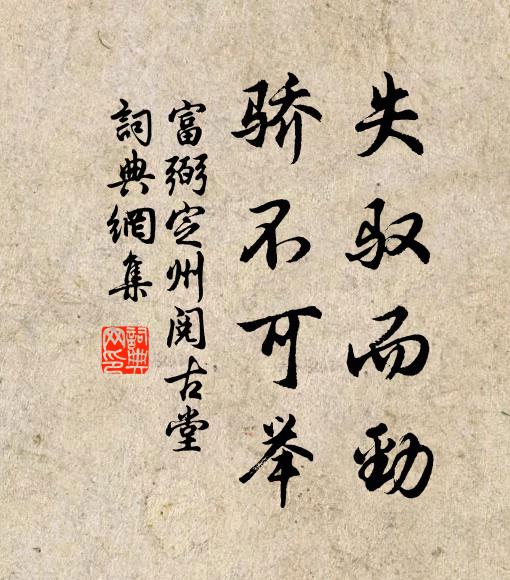 失驭而勁
骄不可举
富弼定州閱古堂
詞典網集
詞典網印